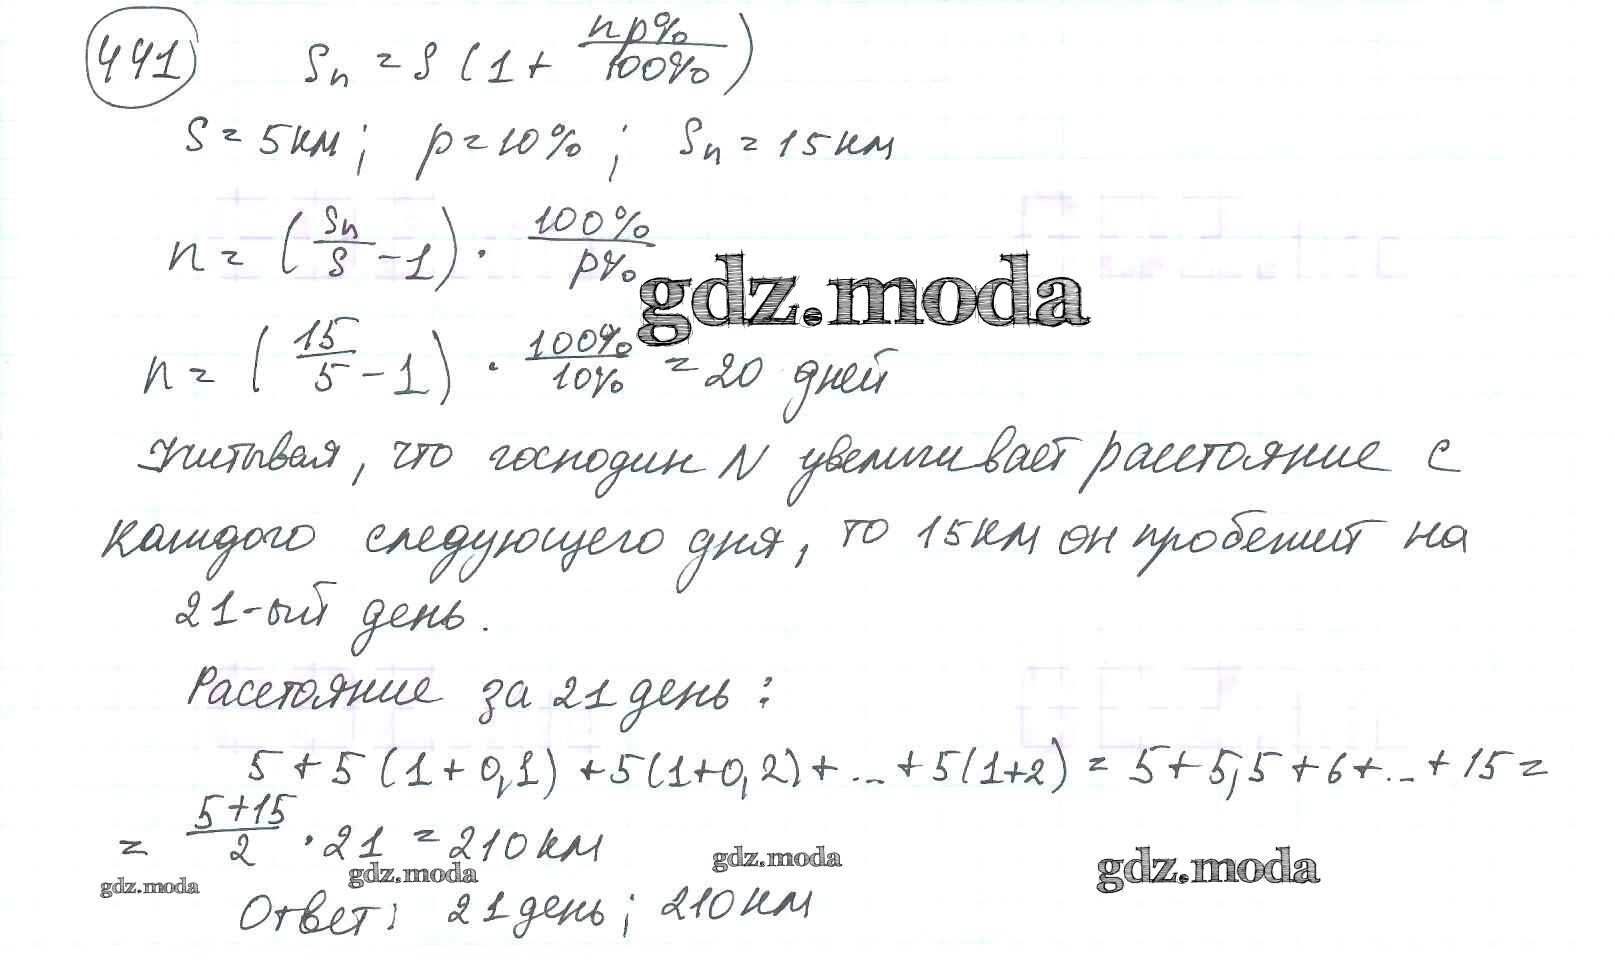 441 Sn = S (1 + np%/100%)
S = 5км; p = 10%; Sn = 15км
n = (Sn/S - 1) · 100%/p%
gdz.moda
n = (15/5 - 1) · 100%/10% = 20 дней
Учитывая, что господин N увеличивает расстояние с
каждого следующего дня, то 15км он пробежит на
21-ый день.
Расстояние за 21 день:
5 + 5 (1 + 0,1) + 5(1+0,2) + ... + 5(1+2) = 5 + 5,5 + 6 + ... + 15 =
= 5+15/2 · 21 = 210 км
gdz.moda gdz.moda gdz.moda gdz.moda
Ответ: 21 день; 210 км